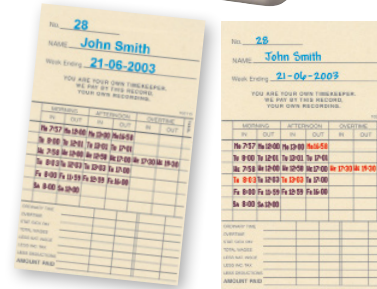 No. 28
NAME John Smith
Week Ending 21-06-2003
YOU ARE YOUR OWN TIMEKEEPER.
WE PAY BY THIS RECORD.
YOUR OWN RECORDING.
MORNING AFTERNOON OVERTIME
IN OUT IN OUT IN OUT
Mo 7:57 Mo 12:00 Mo 13:00 Mo 16:58
Tu 8:00 Tu 12:01 Tu 13:01 Tu 17:01
We 7:58 We 12:00 We 12:59 We 17:00 We 17:30 We 19:30
Th 8:03 Th 12:03 Th 13:03 Th 17:00
Fr 8:00 Fr 11:59 Fr 12:59 Fr 16:00
Sa 8:00 Sa 12:00
ORDINARY TIME
OVERTIME
TOTAL WAGES
LESS INC. TAX
LESS DEDUCTIONS
AMOUNT PAID
No. 28
NAME John Smith
Week Ending 21-06-2003
YOU ARE YOUR OWN TIMEKEEPER.
WE PAY BY THIS RECORD.
YOUR OWN RECORDING.
MORNING AFTERNOON OVERTIME
IN OUT IN OUT IN OUT
Mo 7:57 Mo 12:00 Mo 13:00 Mo 16:58
Tu 8:00 Tu 12:01 Tu 13:01 Tu 17:01
We 7:58 We 12:00 We 12:59 We 17:00 We 17:30 We 19:30
Th 8:03 Th 12:03 Th 13:03 Th 17:00
Fr 8:00 Fr 11:59 Fr 12:59 Fr 16:00
Sa 8:00 Sa 12:00
ORDINARY TIME
OVERTIME
TOTAL WAGES
LESS INC. TAX
LESS DEDUCTIONS
AMOUNT PAID